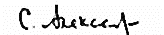 С. Алексеев